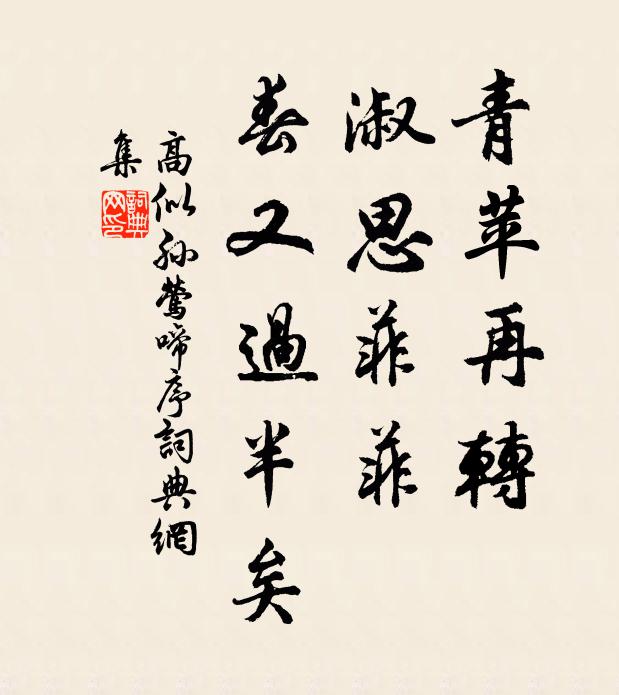 青苹再轉
淑思菲菲
春又過半矣
高似孫鶯啼序詞典網
集
詞典
网印